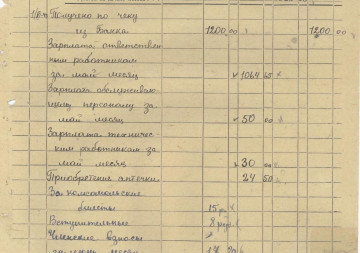 Получено по чеку
из Банка 1200.00 1200.00
Зарплата ответствен
ным работникам
за май месяц 1064 65
Зарплата обслуживаю
щему персоналу за
май месяц 50 00
Зарплата техничес
ким работникам за
май месяц 30 00
Приобретение аптечки 24 50
За комсомольские
билеты 15 р.
Вступительные 8 руб
Членские взносы
месяц